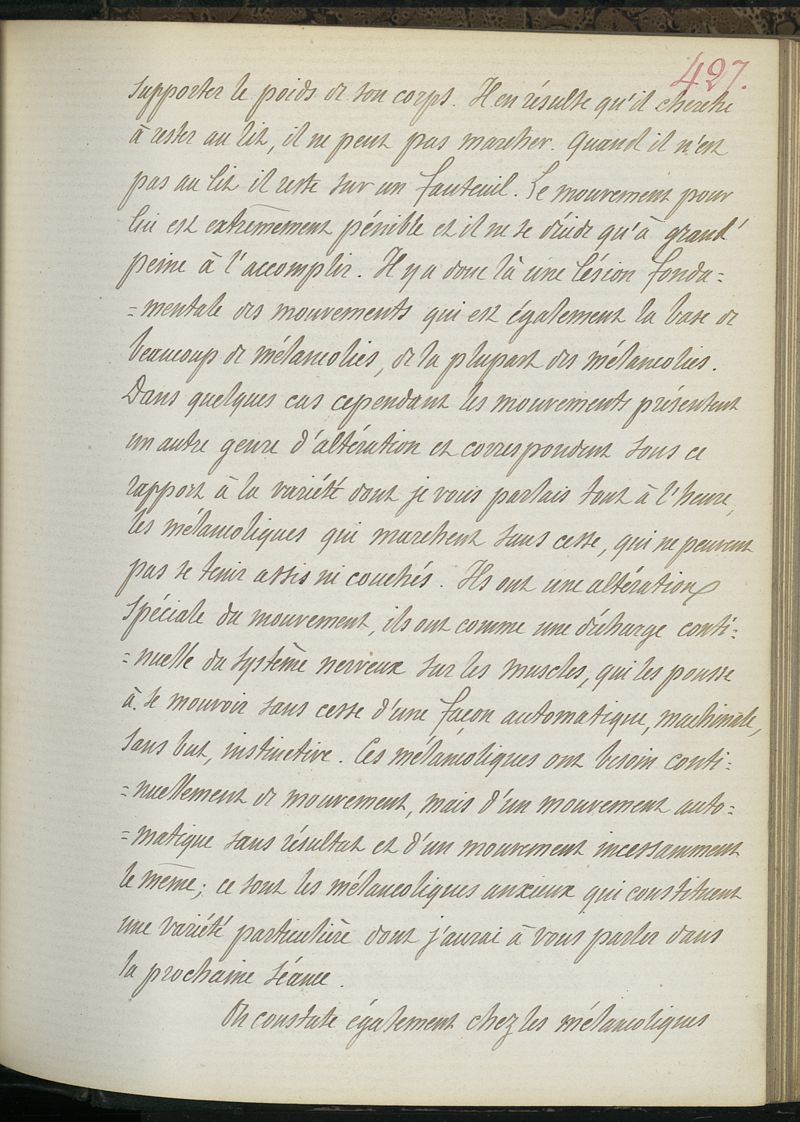 427.
supporter le poids de son corps. Il en résulte qu'il cherche
à rester au lit, il ne peut pas marcher. Quand il n'est
pas au lit il reste sur un fauteuil. Le mouvement pour
lui est extrêmement pénible et il ne se décide qu'à grand'
peine à l'accomplir. Il y a donc là une lésion fonda=
=mentale des mouvements qui est également la base de
beaucoup de mélancolies, de la plupart des mélancolies.
Dans quelques cas cependant les mouvements présentent
un autre genre d'altération et correspondent sous ce
rapport à la variété dont je vous parlais tout à l'heure,
les mélancoliques qui marchent sans cesse, qui ne peuvent
pas se tenir assis ni couchés. Ils ont une altération
spéciale du mouvement, ils ont comme une décharge conti=
=nuelle du système nerveux sur les muscles, qui les pousse
à se mouvoir sans cesse d'une façon automatique, machinale,
sans but, instinctive. Ces mélancoliques ont besoin conti=
=nuellement de mouvement, mais d'un mouvement auto=
=matique sans résultat et d'un mouvement incessamment
le même; ce sont les mélancoliques anxieux qui constituent
une variété particulière dont j'aurai à vous parler dans
la prochaine séance.
On constate également chez les mélancoliques